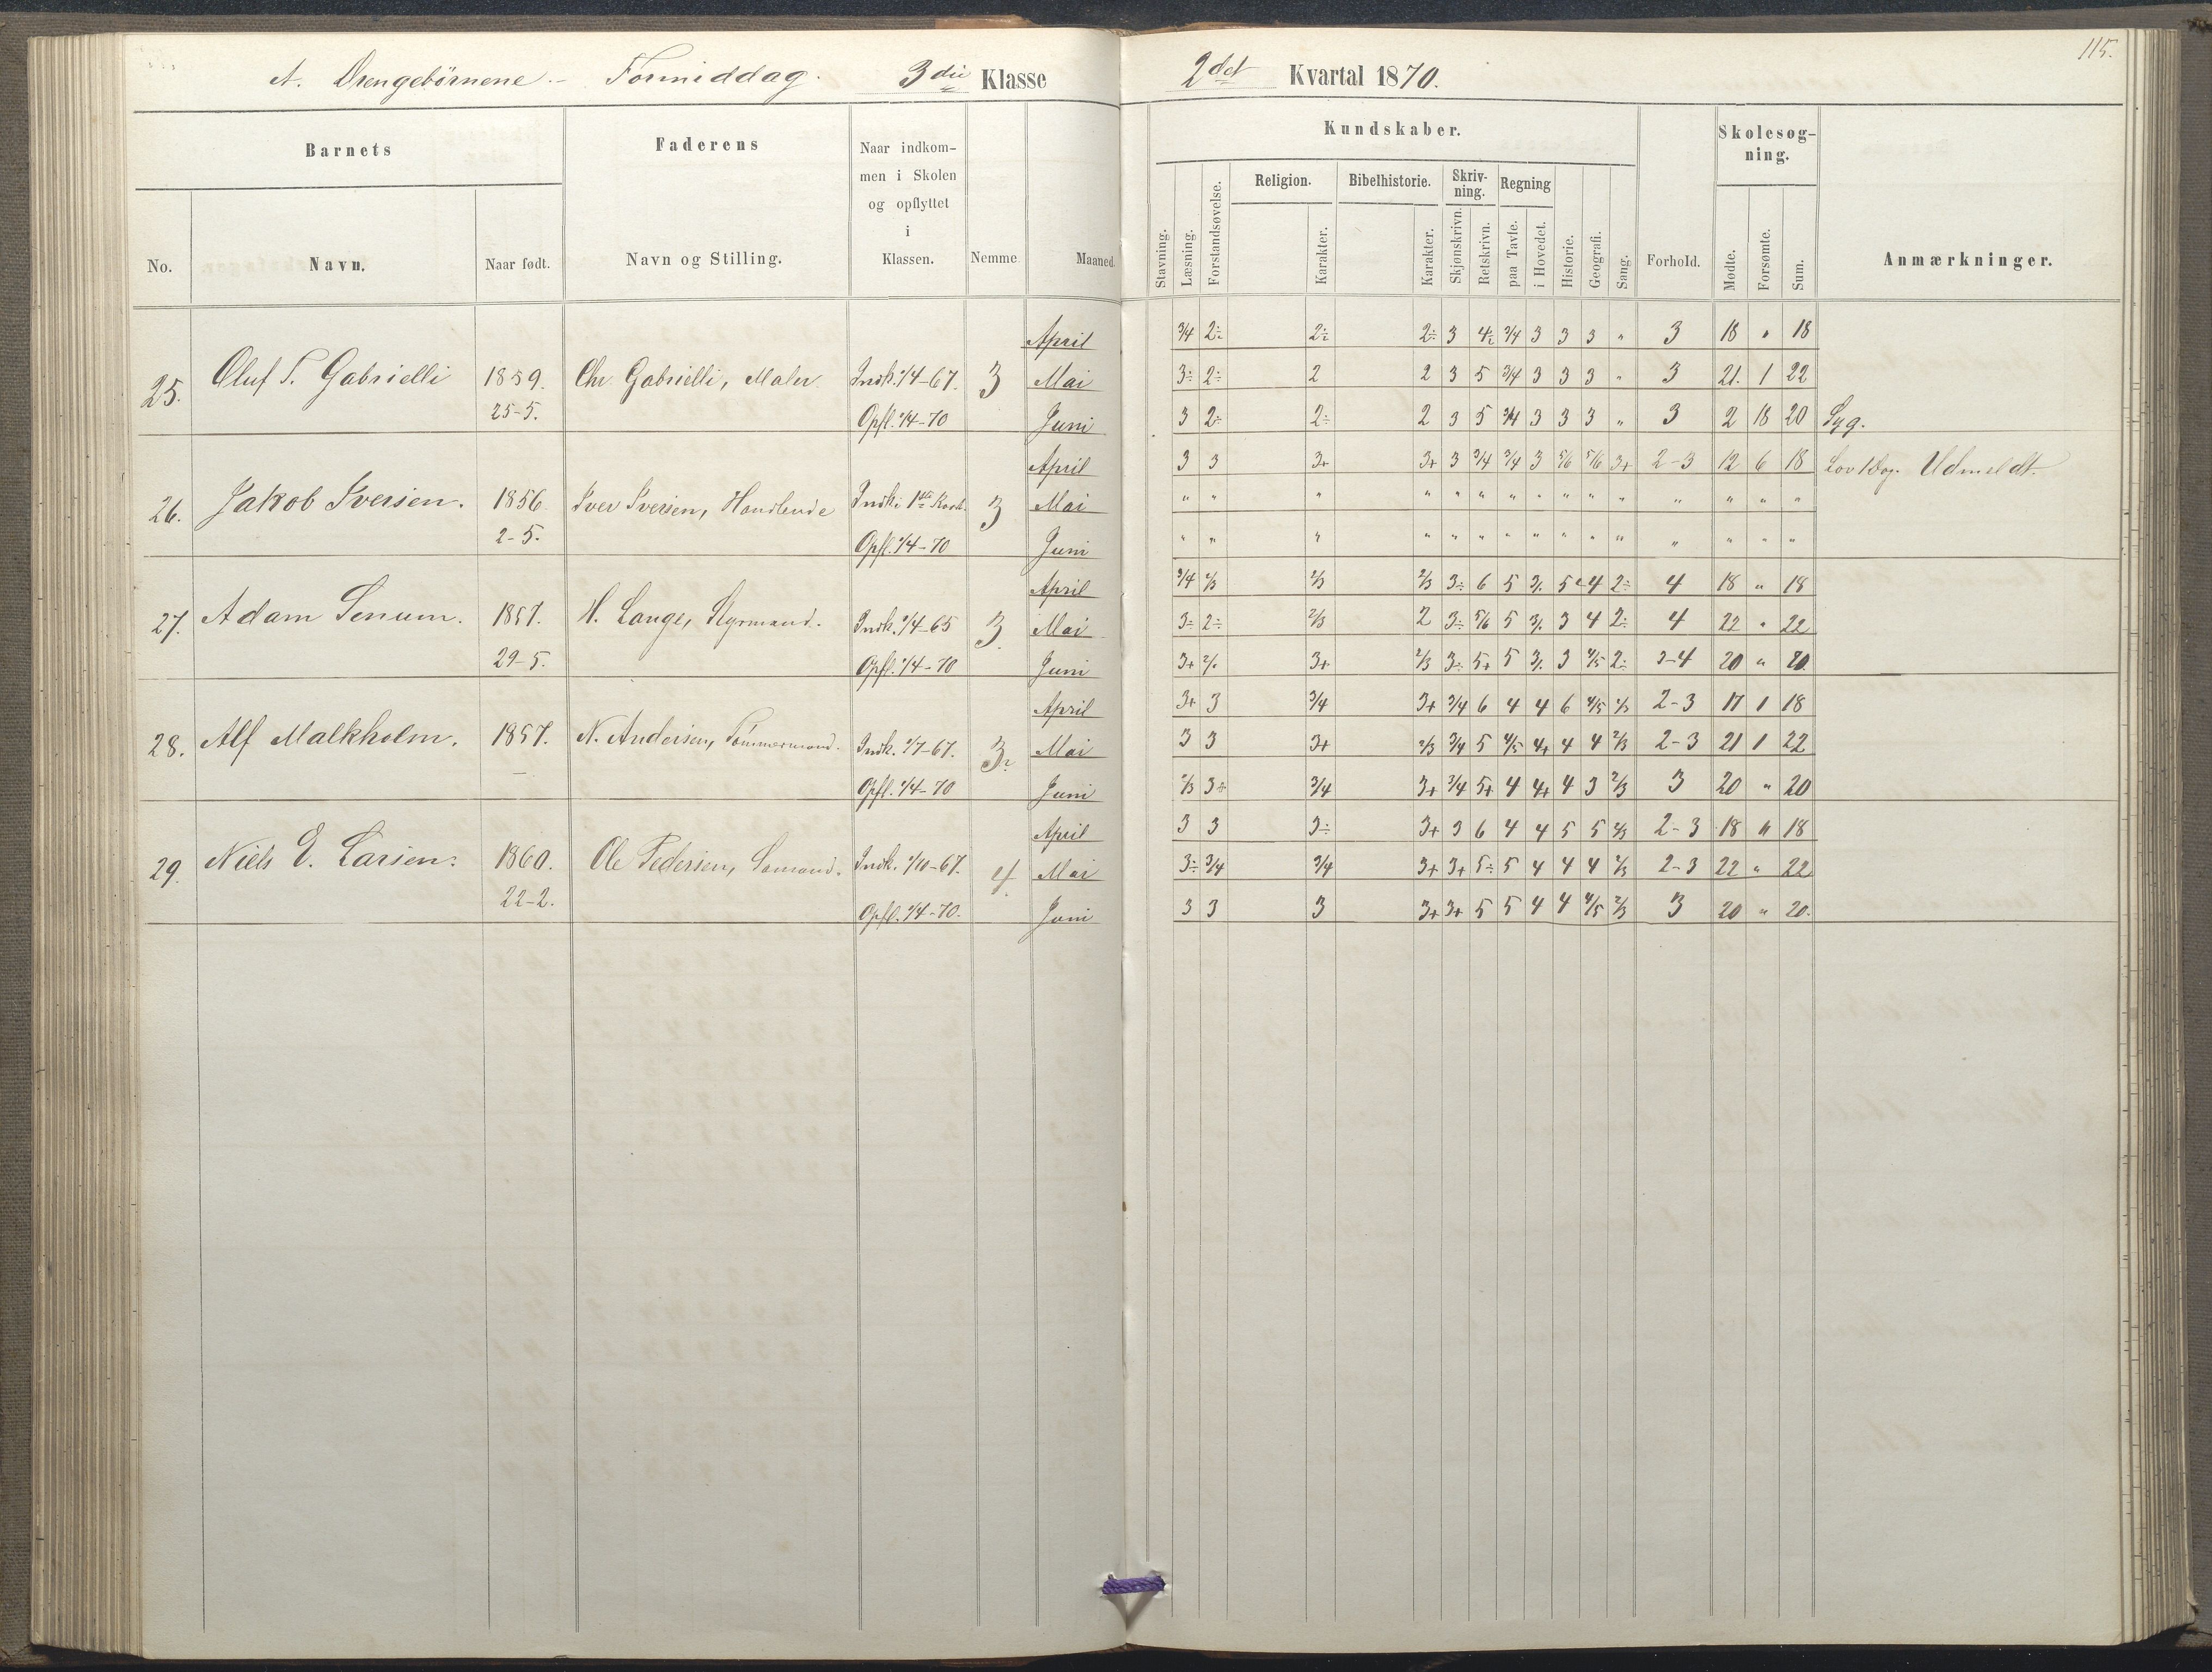 115.
A. Drengebørnene. - Formiddag. 3die Klasse 2det Kvartal 1870.
Barnets Faderens Naar indkommen i Skolen og opflyttet i Klassen. Nemme Maaned. Kundskaber. Forhold. Skolesøgning. Anmærkninger.
No. Navn. Naar født. Navn og Stilling.
Stavning. Læsning. Forstandsøvelse. Religion. Karakter. Bibelhistorie. Karakter. Skrivning. Skjønskrivn. Retskrivn. Regning paa Tavle. i Hovedet. Historie. Geografi. Sang. Mødte. Forsømte. Sum.
April 3/4 2÷ 2÷ 2÷ 3 4÷ 3/4 3 3 3 " 3 18 " 18
25. Oluf S. Gabrielli 1859. Chr. Gabrielli, Maler Indk. 1/4-67. 3 Mai 3÷ 2÷ 2 2 3 5 3/4 3 3 3 " 3 21. 1 22
25-5. Opfl. 1/4-70 Juni 3 2÷ 2÷ 2 3 5 3/4 3 3 3 " 3 2 18 20 Syg.
April 3 3 3+ 3+ 3 3/4 3/4 3 5/6 5/6 3+ 2-3 12 6 18 Lov 1 Dag. Udmeldt.
26. Jakob Iversen. 1856 Iver Iversen, Handlende Indk. 3 Mai " " " " " " " " " " " " " " "
2-5. Opfl. 1/4-70 Juni " " " " " " " " " " " " " " "
April 3/4 2/3 2/3 2/3 3÷ 6 5 5 4 2÷ 4 18 " 18
27. Adam Senum. 1857. H. Lange, Styrmand. Indk. 1/4-65 3 Mai 3÷ 2÷ 2/3 2 3÷ 5/6 5 3 4 2÷ 4 22 " 22
29-5. Opfl. 1/4-70 Juni 3+ 3+ 2/3 3÷ 5+ 5 3 4/5 2÷ 3-4 20 " 20
April 3+ 3 3/4 3+ 3/4 6 4 4 6 4/5 2/3 2-3 17 1 18
28. Alf Malkholm. 1857. N. Andersen, Tømmermand. Indk. 1/7-67. 3 Mai 3 3 3+ 2/3 3/4 5 4/5 4+ 4 4 2/3 2-3 21 1 22
- Opfl. 1/4-70 Juni 2/3 3÷ 3/4 3+ 3/4 5+ 4 4+ 4 3 2/3 3 20 " 20
April 3 3 3÷ 3+ 3 6 4 4 5 5 2/3 2-3 18 " 18
29. Niels E. Larsen. 1860. Ole Pedersen, Sømand. Indk. 1/10-67. 4. Mai 3÷ 3/4 3/4 3+ 3+ 5÷ 5 4 4 4 2/3 2-3 22 " 22
22-2. Opfl. 1/4-70. Juni 3 3 3 3+ 3+ 5 5 4 4 4/5 2/3 3 20 " 20.